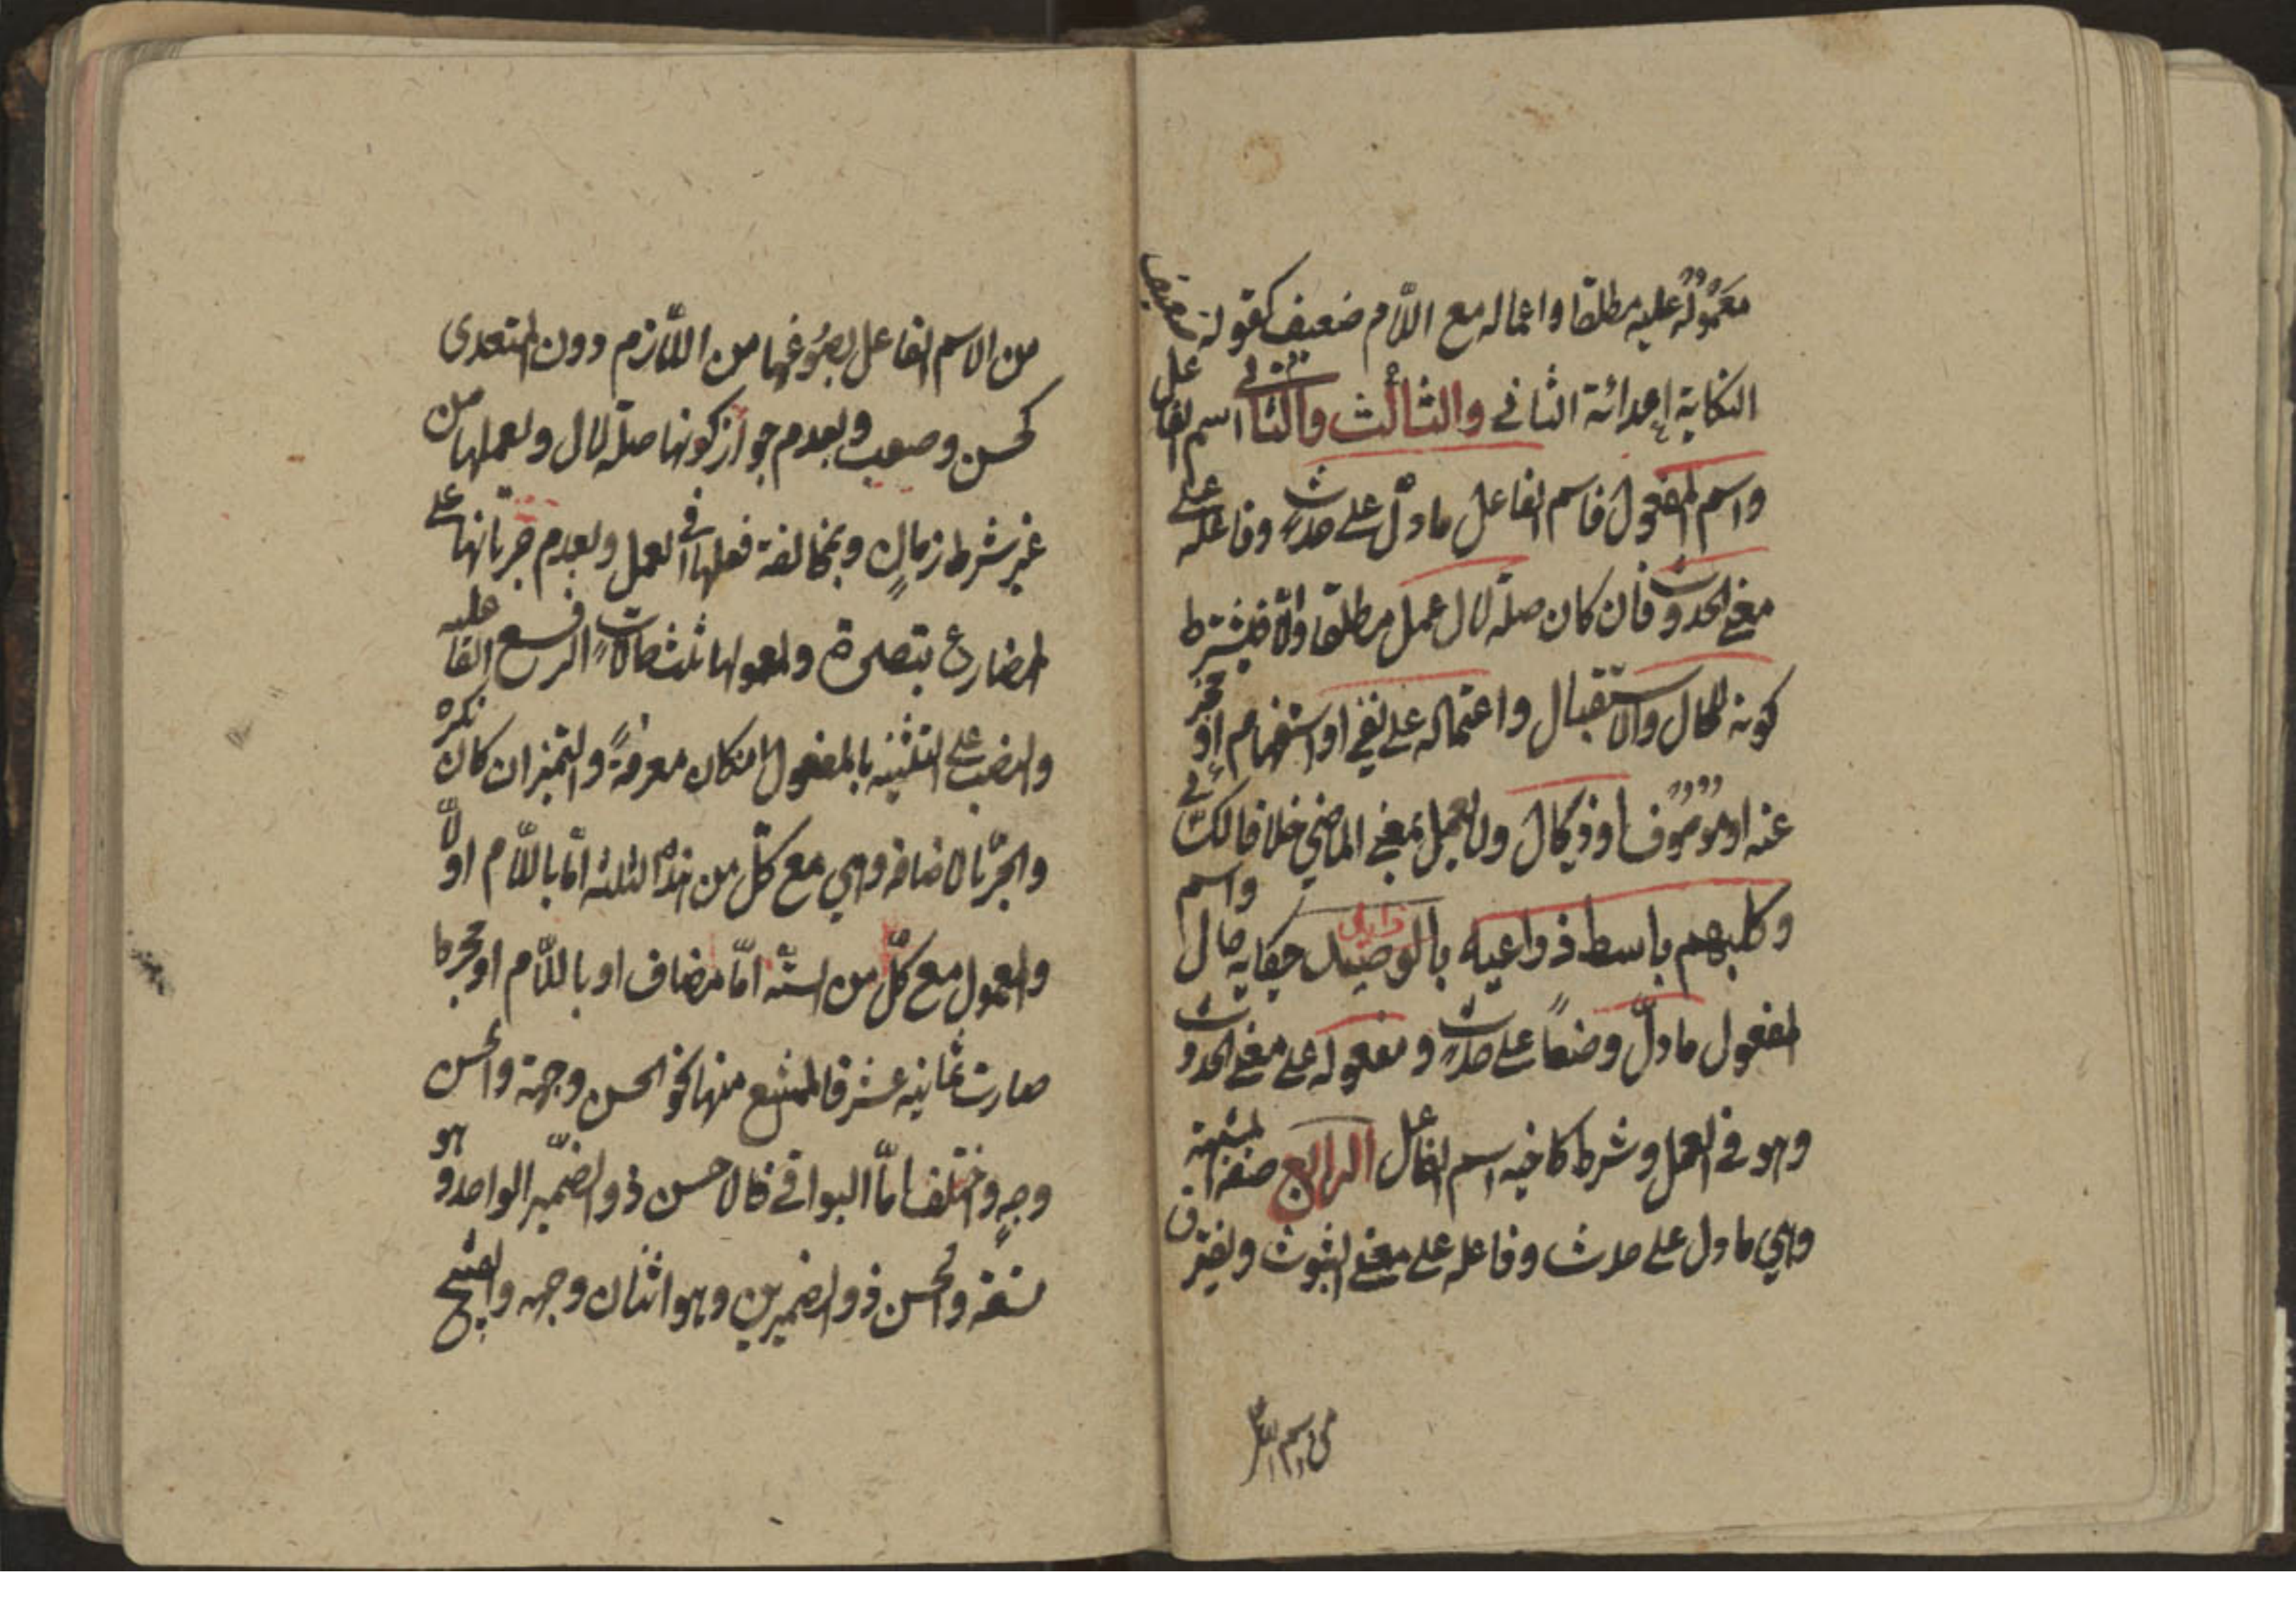 معموله عليه مطلقا واعماله مع اللام ضعيف كقوله ضعيف
النكاية إعدائه الثانى والثالث والثانى اسم الفاعل
واسم المفعول فاسم الفاعل مادل على حدث وفاعله على
معنى الحدوث فان كان صلة لال عمل مطلقا والا فيشترط
كونه للحال والاستقبال واعتماله على نفى او استفهام او مخبر
عنه او موصوف او ذى حال ولا يعمل بمعنى الماضى خلافا لك فى
وكلبهم باسط ذراعيه بالوصيد حكاية حال واسم
المفعول مادل وضعا على حدث ومفعوله على معنى الحدوث
وهو فى العمل وشرط كاخيه اسم الفاعل الرابع صفة المشبهة
وهى مادل على حدث وفاعله على معنى الثبوت ويفترق
من اسم الفاعل
من الاسم الفاعل بصوغها من اللازم دون المتعدى
كحسن وصعب وبعدم جواز كونها صلة لال ولعملها من
غير شرط زمان وبمخالفة فعلها فى العمل وبعدم جريانها على
المضارع بتصلى ة ولمعمولها ثلث حالات الرفع الفا علية
والنصب على التشبيه بالمفعول ان كان معرفة والتميز ان كان نكرة
والجر بالاضافة وهى مع كل من هذه الثلثة اما باللام او لا
والمعمول مع كل من الستة اما مضاف او باللام او مجردا
صارت ثمانية عشر فالممتنع منها نحو الحسن وجهه والحسن
وجه واختلف اما البواقى فالاحسن ذو الضمير الواحد وهو
تسعة والحسن ذو الضميرين وهو اثنان وجهه والقبيح